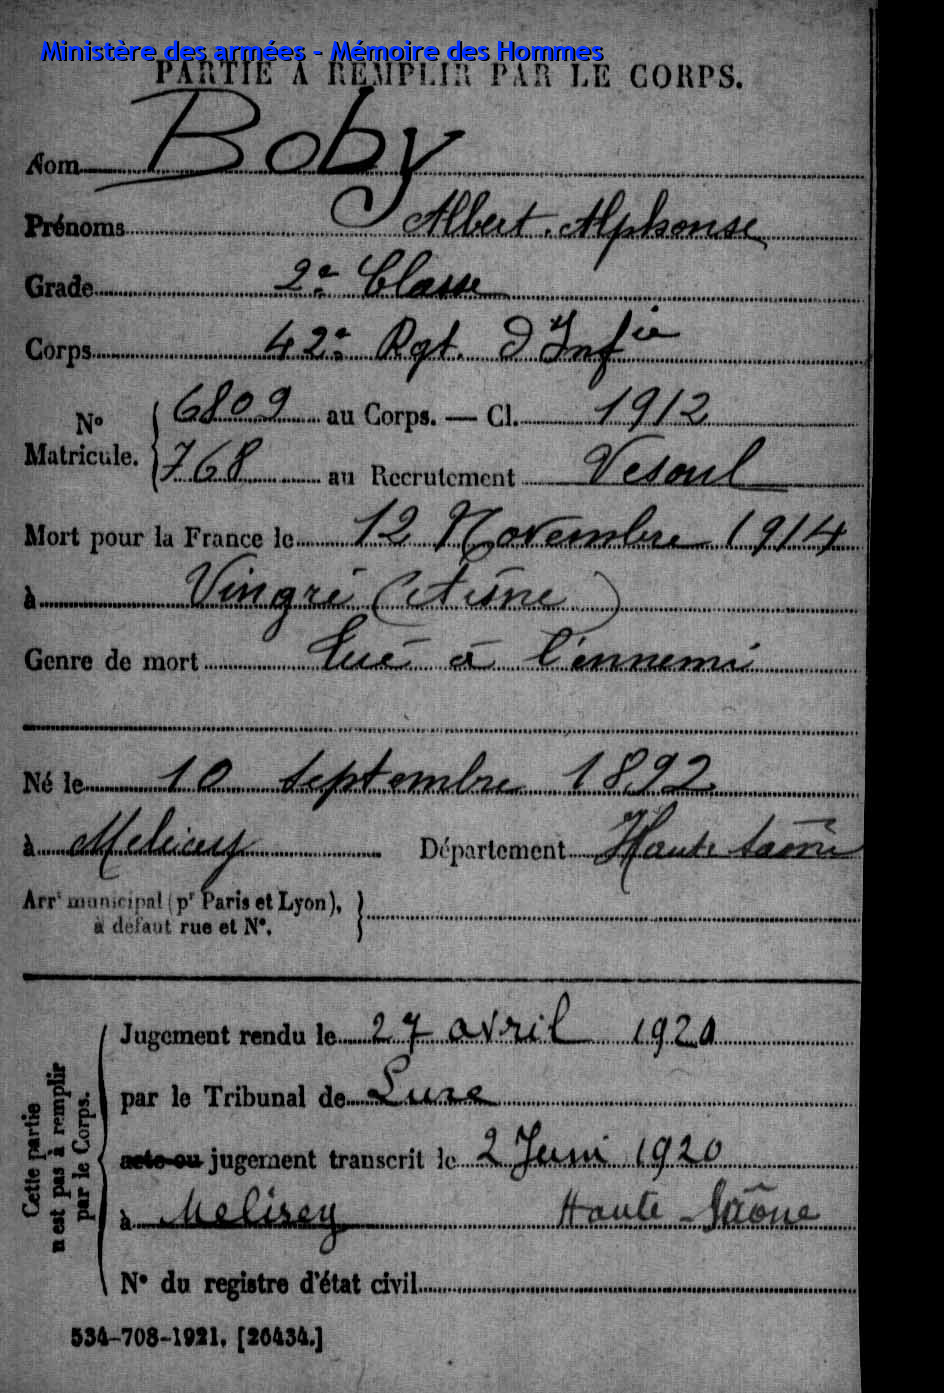 Ministère des armées - Mémoire des Hommes
PARTIE A REMPLIR PAR LE CORPS.
Nom Boby
Prénoms Albert. Alphonse
Grade 2e Classe
Corps 42e Rgt. d'Infie
No Matricule. { 6809 au Corps. — Cl. 1912
768 au Recrutement Vesoul
Mort pour la France le 12 Novembre 1914
à Vingré (Aisne)
Genre de mort Tué à l'ennemi
Né le 10 septembre 1892
à Melisey Département Haute Saône
Arrt municipal (pr Paris et Lyon), }
à défaut rue et No.
Cette partie n'est pas à remplir par le Corps.
Jugement rendu le 27 avril 1920
par le Tribunal de Lure
acte ou jugement transcrit le 2 Juin 1920
à Melisey Haute-Saône
No du registre d'état civil
534-708-1921. [26434.]